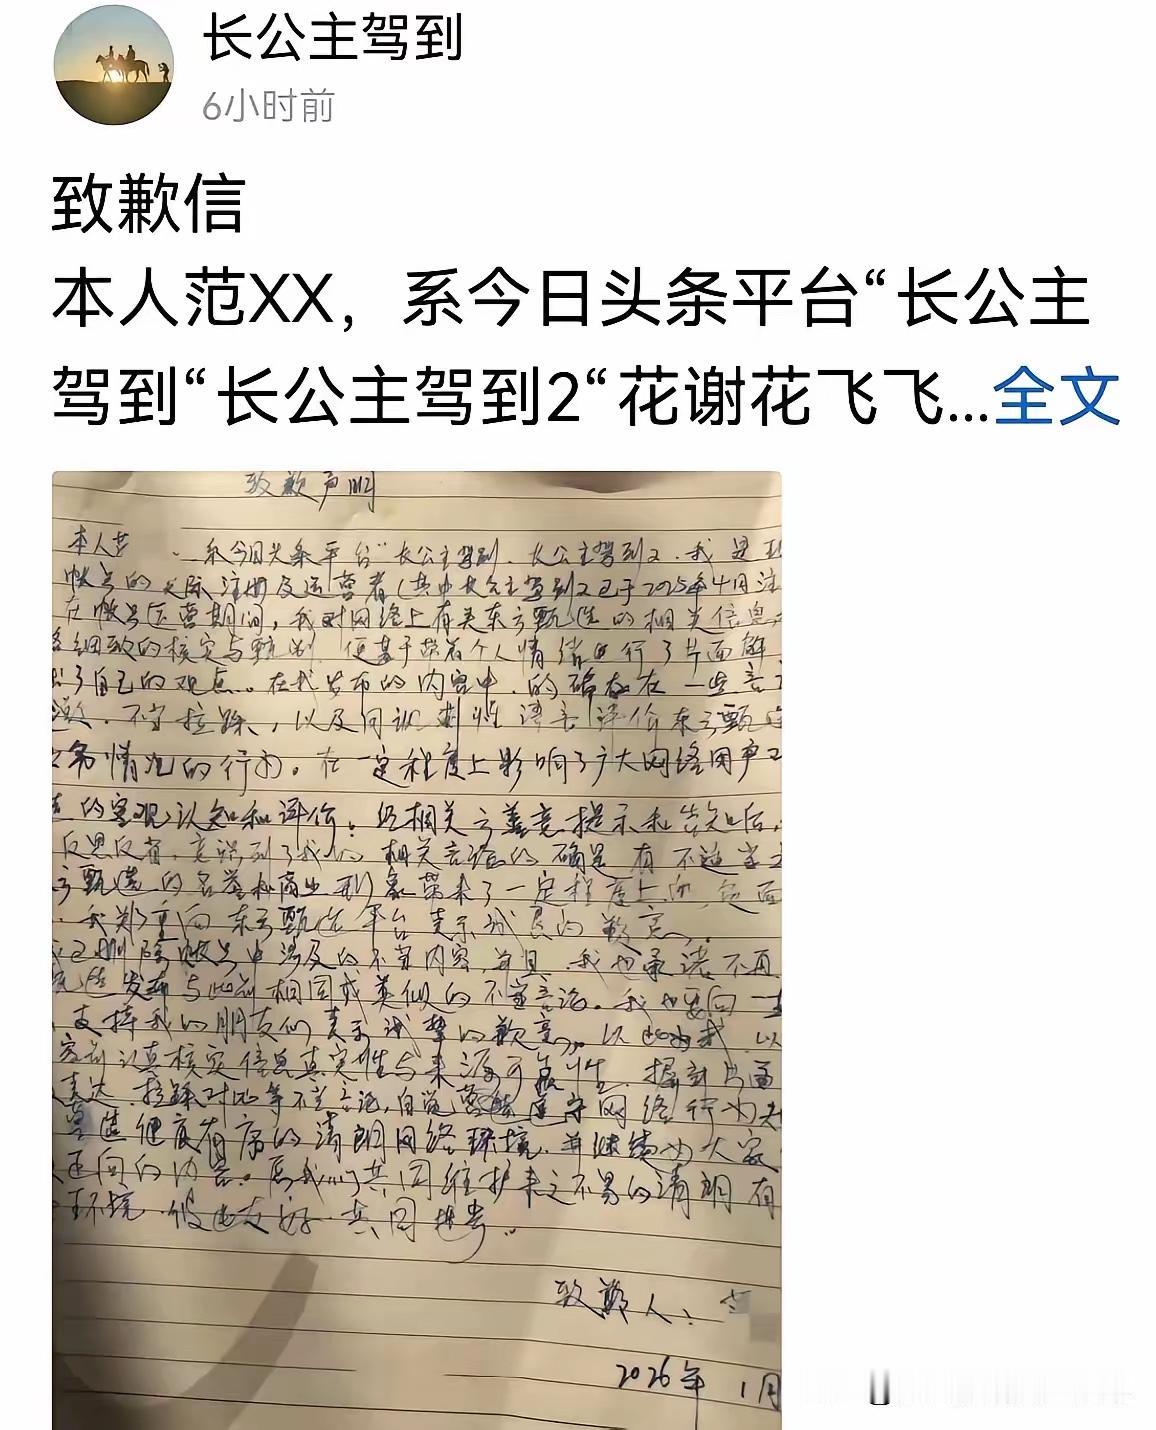 长公主驾到
6小时前
致歉信
本人范XX，系今日头条平台“长公主
驾到“长公主驾到2“花谢花飞飞...全文
致歉声明
本人范 系今日头条平台“长公主驾到、长公主驾到2.我是
帐号的实际注册及运营者(其中长公主驾到2已于2025年4月注
在帐号运营期间，我对网络上有关东方甄选的相关信息
细致的核实与甄别 便基于带着个人情绪进行了片面解
了自己的观点。在我发布的内容中.的确存在一些言
激、不当拉踩、以及 评价东方甄选
务情况的行为。在一定程度上影响了广大网络用户
的客观认知和评价；经相关方善意提示和告知后，
反思反省，意识到了我的相关言论的确是有不适当
方甄选的名誉和商业形象带来了一定程度上的负面
我郑重向东方甄选平台表示诚恳的歉意。
已删除帐号中涉及的不当内容，并且 我也承诺不再
发布与此前相同或类似的不当言论。我也要向一直
支持我的朋友们表示诚挚的歉意。以此为戒.以
认真核实信息真实性与来源可靠性.摒
表达、拉踩对比等不当言论，自觉 遵守网络行为
营造健康有序的清朗网络环境.并继续为大家
正向的内容。愿我们共同维护来之不易的清朗有
环境 彼此友好 共同进步。
致歉人：范
2026年1月